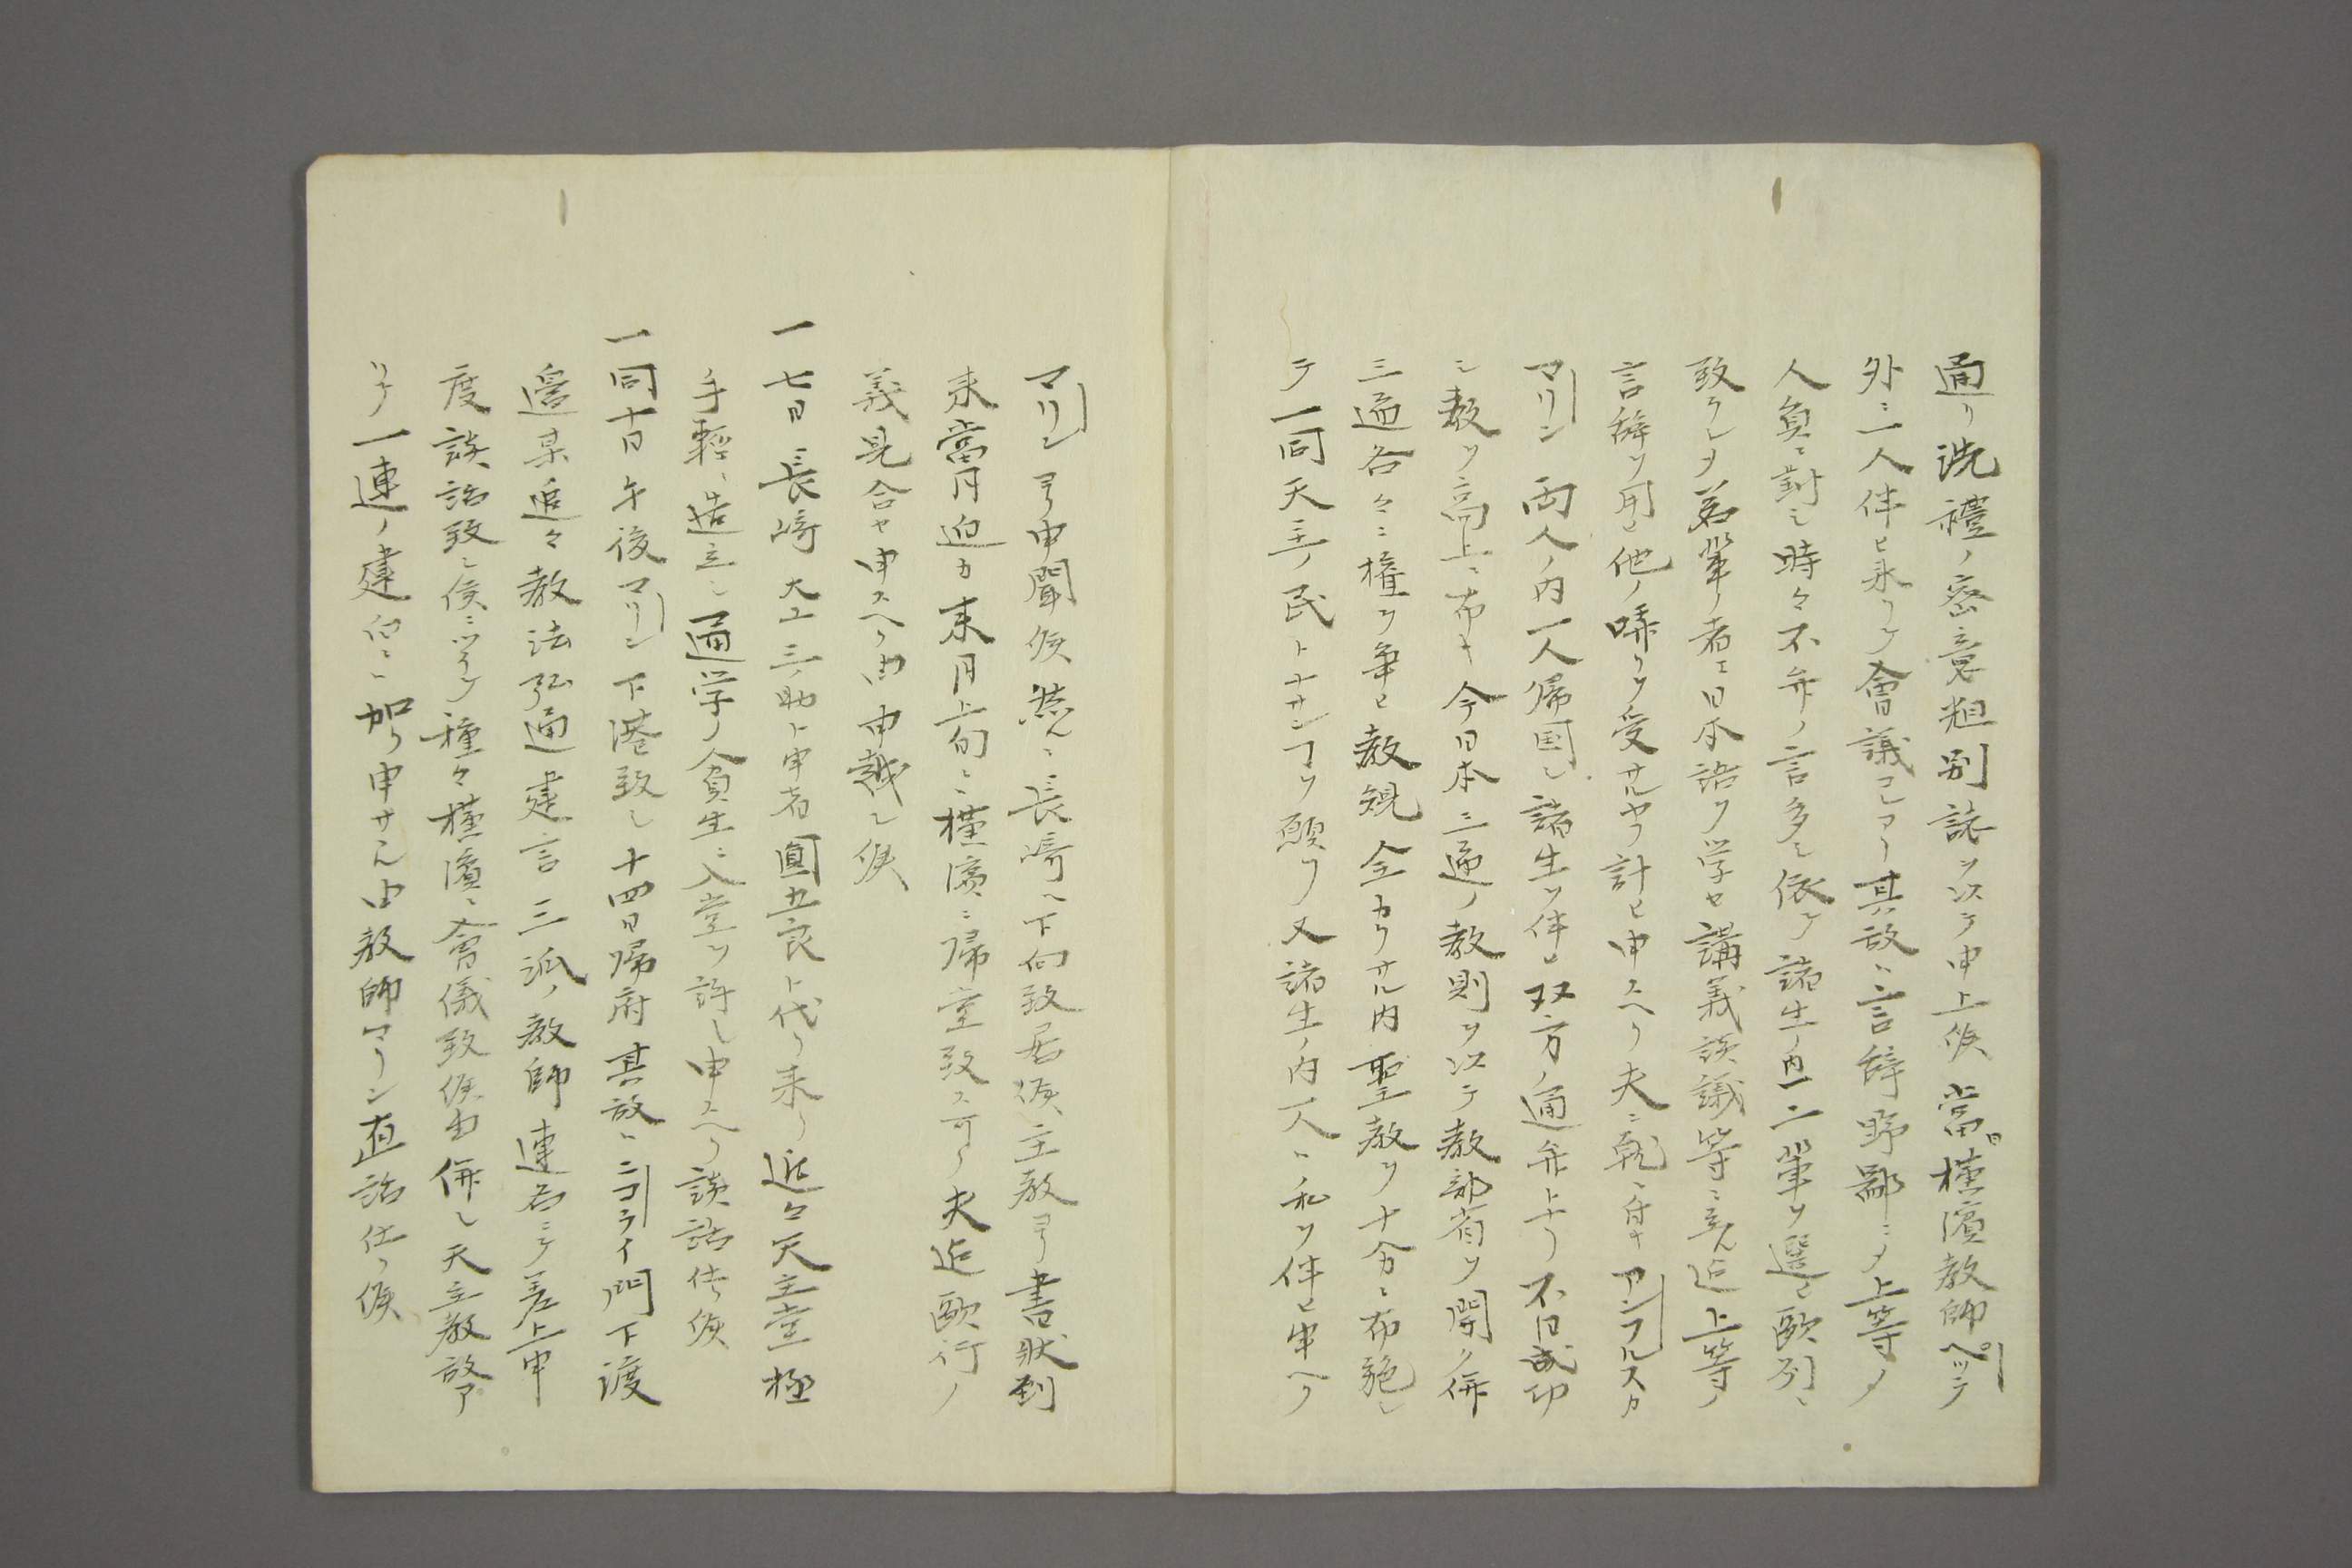 通リ洗禮ノ密意粗別誌ヲ以テ申上候當日横濱教師ペッテ
外ニ一人伴ヒ来リテ會議コレアリ其故ニ言辞野鄙ニメ上等ノ
人員ニ對シ時々不弁ノ言多シ依テ諸生ノ内一二輩ヲ選ヒ欧列ニ
致ラシメ若輩ノ者エ日本語ヲ学セ講義談議等ニ至ル迄上等ノ
言辞ヲ用ヒ他ノ哢リヲ受サルヤフ計ヒ申スヘク夫ニ就テ付キアンフルスカ
マリン両人ノ内一人帰国シ諸生ヲ伴ヒ双方ノ通弁トナリ不日成功
シ教ヲ高上ニ布キ今日本三通ノ教則ヲ以テ教部省ヲ開ク併
三通各々ニ権ヲ争ヒ教規全カラサル内聖教ヲ十分ニ布施シ
テ一同天主ノ民トナサンコヲ願フ又諸生ノ内一人ニ私ヲ伴ヒ申ヘク
マリンヨリ申聞候然ルニ長﨑ヘ下向致居候主教ヨリ書状到
来當月迫カ来月上旬ニ横濱ニ帰堂致ス可ク夫迄歐行ノ
義見合セ申スヘク由申越シ候
一七日長﨑大工三ノ助ト申者圓五良ト代リ来リ近々天主堂極
手輕ニ造立シ通学ノ人員生ニ入堂ヲ許シ申スヘク談話仕候
一同十日午後マリン下港致シ十四日帰府其故ニニコライ門下渡
邉某追々教法弘通建言三派ノ教師連名ニテ差上申
度談話致シ候ニツイテ種々横濱ニ會儀致候由併シ天主教故ア
リテ一連ノ建白ニ加ヘ申サル由教師マリン直話仕リ候